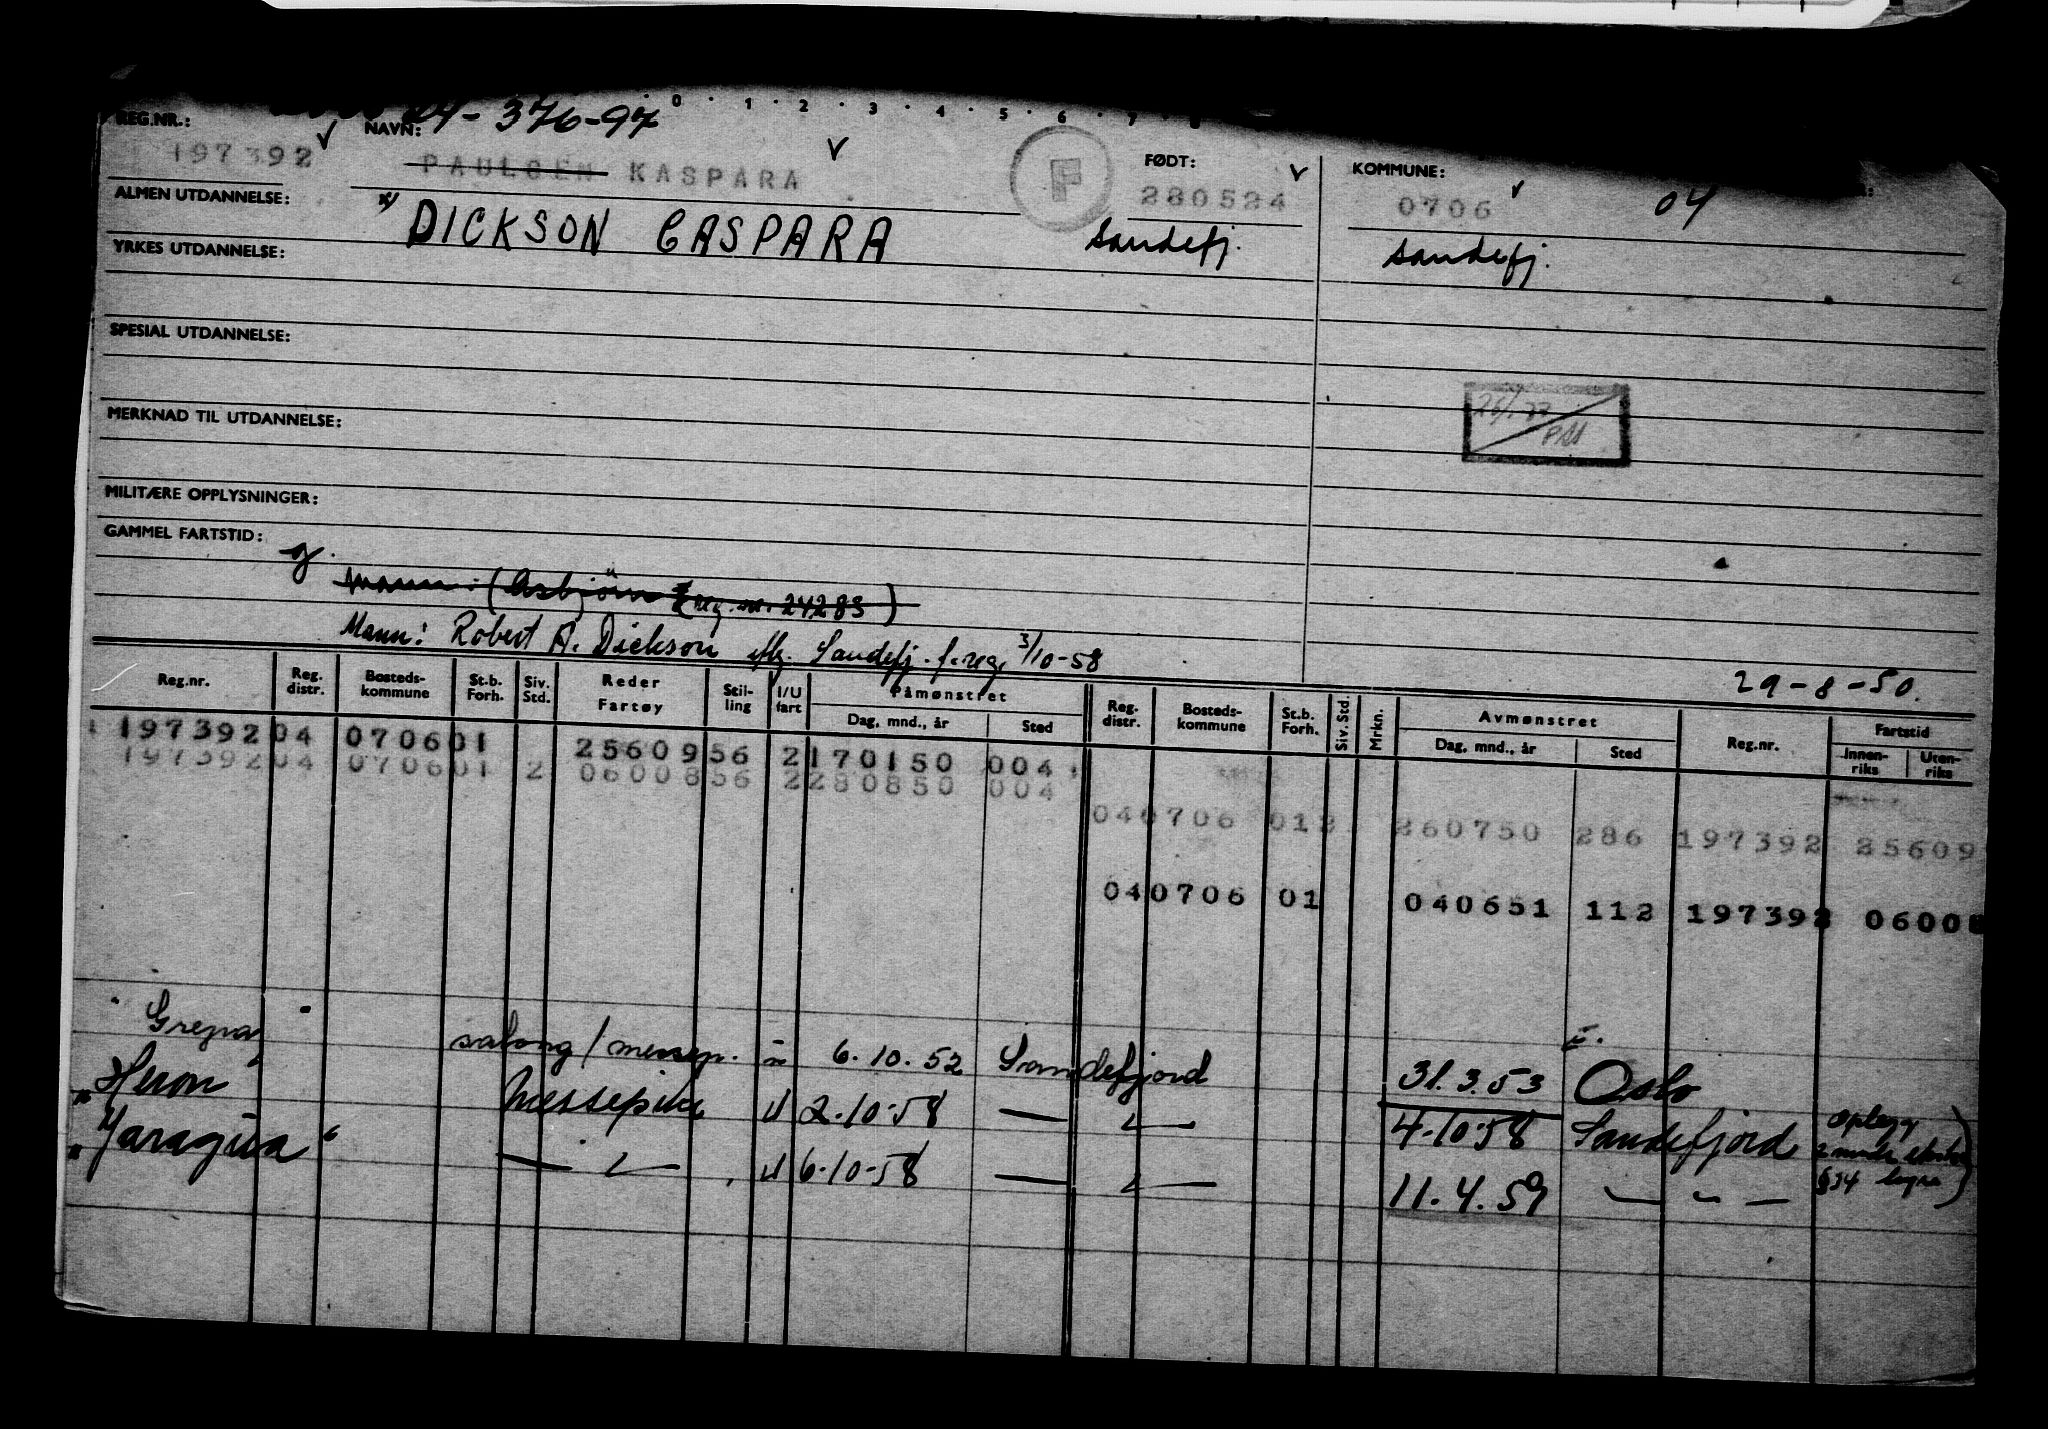 24-376-97
0 · 1 · 2 · 3 · 4 · 5 · 6 · 7 · 8
REG.NR.: NAVN: FØDT: KOMMUNE:
197392 PAULSEN KASPARA F 280524 0706 04
ALMEN UTDANNELSE: DICKSON CASPARA Sandefj. Sandefj.
YRKES UTDANNELSE:
SPESIAL UTDANNELSE:
MERKNAD TIL UTDANNELSE:
MILITÆRE OPPLYSNINGER:
GAMMEL FARTSTID:
g.
Mann: (Asbjörn reg. nr. 24283)
Mann: Robert A. Dickson Sandefj. f. reg. 3/10-58
29-8-50.
Reg.nr. Reg. distr. Bosteds-kommune St.b. Forh. Siv. Std. Reder Fartøy Stil-ling I/U fart Påmønstret Reg. distr. Bosteds-kommune St.b. Forh. Siv. Std. Mrkn. Avmønstret Reg.nr. Fartstid
Dag, mnd., år Sted Dag, mnd., år Sted Innen-riks Uten-riks
197392 04 0706 01 25609 56 2 170150 004
197392 04 0706 01 2 06008 56 2 280850 004
04 0706 01 2 260750 286 197392 25609
04 0706 01 040651 112 197392 0600
"Gregna" salong/messep. 6.10.52 Sandefjord 31.3.53 Oslo
"Heron" Messepike U 2-10-58 — " — 4-10-58 Sandefjord
"Yaragua" — " — U 6-10-58 — " — 11.4.59 — " —